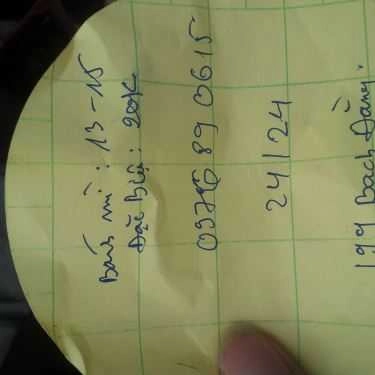 Bánh mì : 13 - 15
Đặc Biệt : 20K
0976 89 06 15
24/24
199 Bạch Đằng.